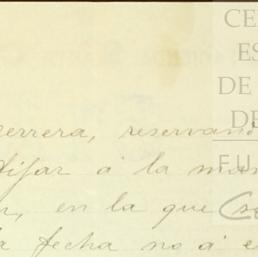 CE
ES
DE
DE
FU
errera, reservan
difar á la man
en la que
fecha no á e